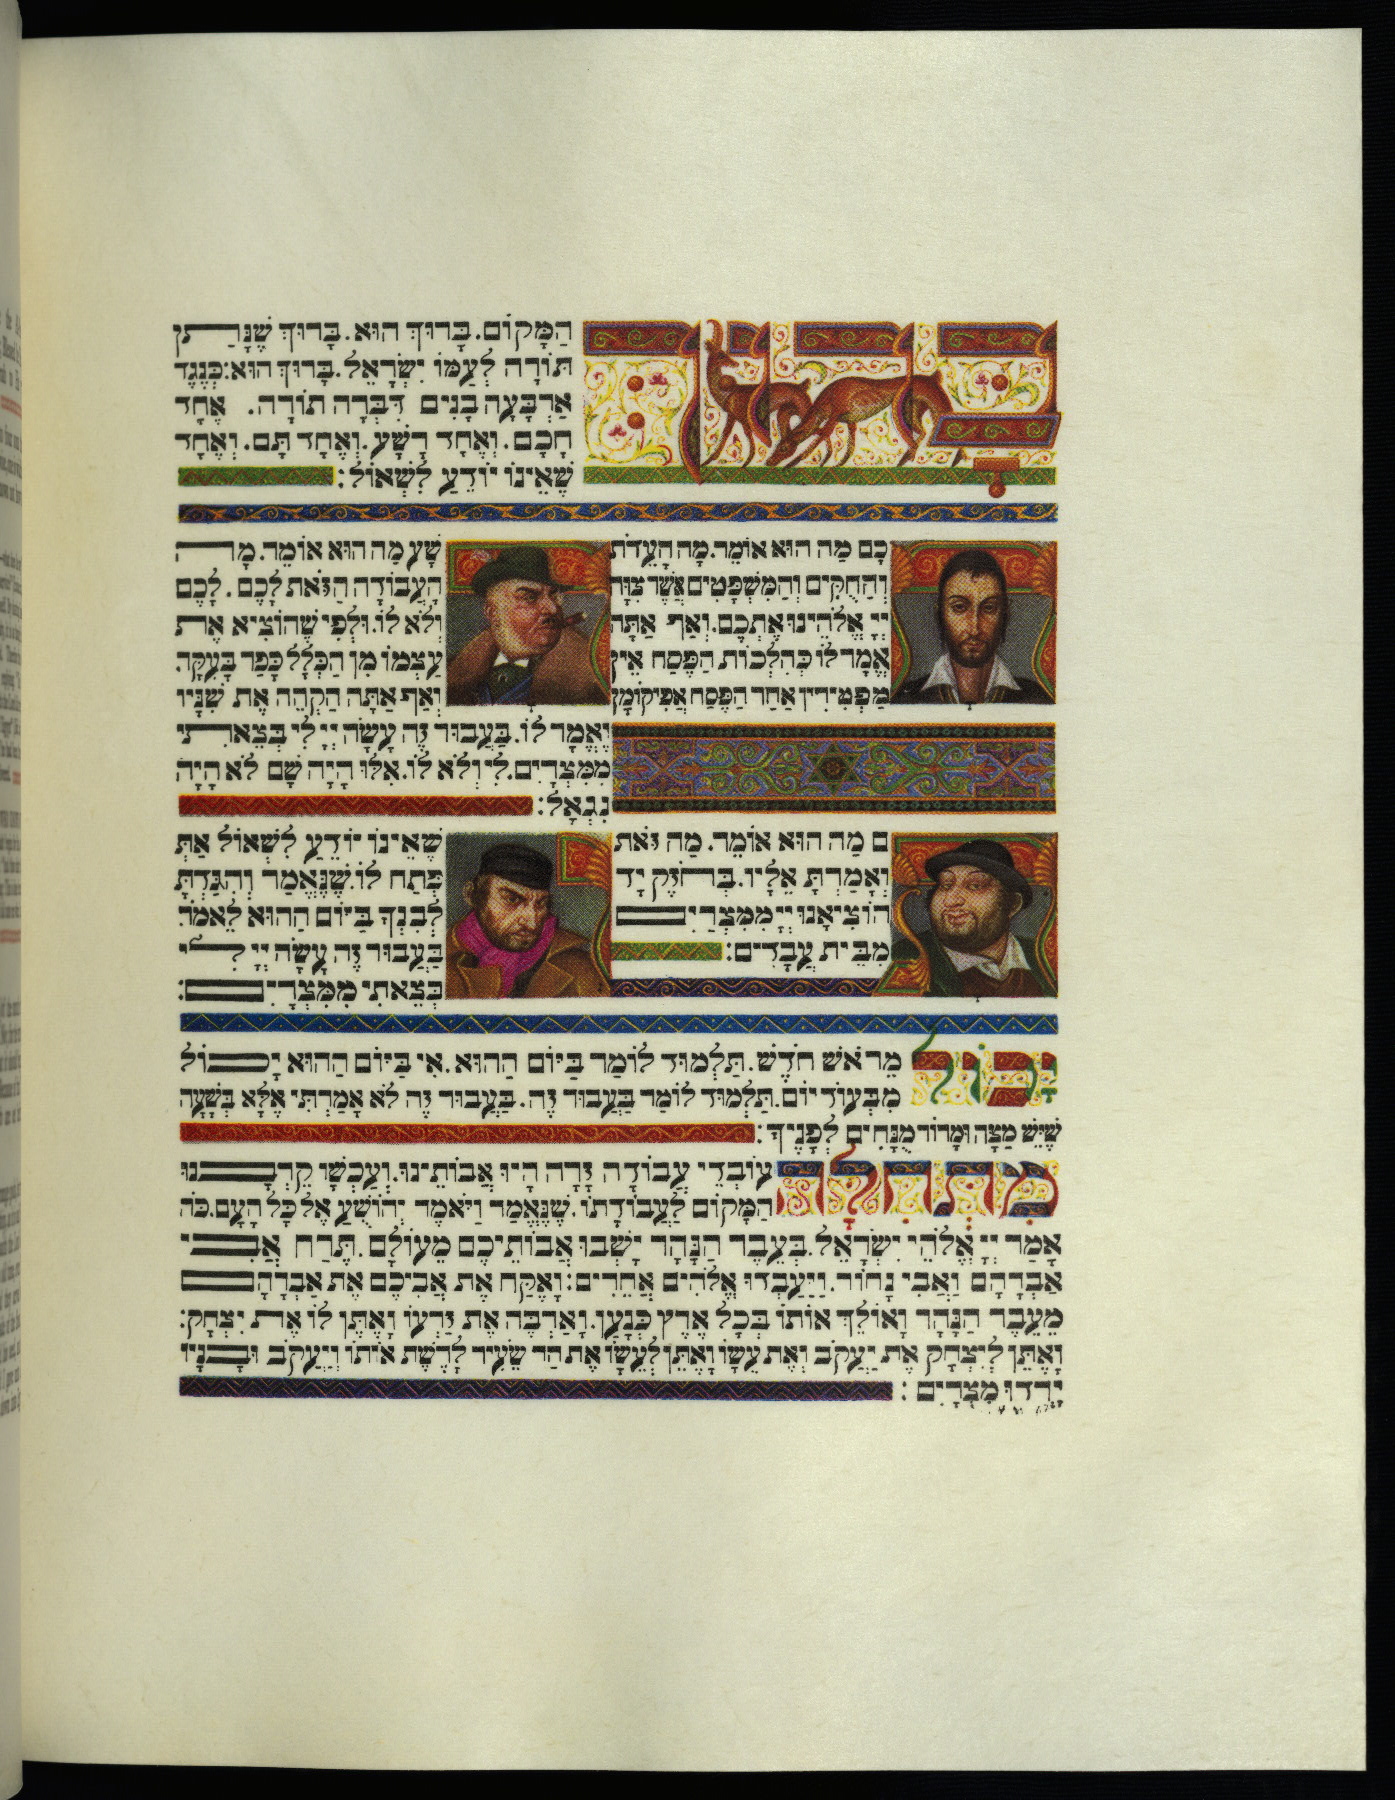 בָּרוּךְ
הַמָּקוֹם. בָּרוּךְ הוּא. בָּרוּךְ שֶׁנָּתַן
תּוֹרָה לְעַמּוֹ יִשְׂרָאֵל. בָּרוּךְ הוּא: כְּנֶגֶד
אַרְבָּעָה בָנִים דִּבְּרָה תוֹרָה. אֶחָד
חָכָם. וְאֶחָד רָשָׁע. וְאֶחָד תָּם. וְאֶחָד
שֶׁאֵינוֹ יוֹדֵעַ לִשְׁאוֹל:
כָם מַה הוּא אוֹמֵר. מָה הָעֵדֹת
וְהַחֻקִּים וְהַמִּשְׁפָּטִים אֲשֶׁר צִוָּה
יְיָ אֱלֹהֵינוּ אֶתְכֶם. וְאַף אַתָּה
אֱמָר לוֹ כְּהִלְכוֹת הַפֶּסַח אֵין
מַפְטִירִין אַחַר הַפֶּסַח אֲפִיקוֹמָן
שָׁע מַה הוּא אוֹמֵר. מָה
הָעֲבוֹדָה הַזֹּאת לָכֶם. לָכֶם
וְלֹא לוֹ. וּלְפִי שֶׁהוֹצִיא אֶת
עַצְמוֹ מִן הַכְּלָל כָּפַר בָּעִקָּר.
וְאַף אַתָּה הַקְהֵה אֶת שִׁנָּיו
וֶאֱמָר לוֹ. בַּעֲבוּר זֶה עָשָׂה יְיָ לִי בְּצֵאתִי
מִמִּצְרָיִם. לִי וְלֹא לוֹ. אִלּוּ הָיָה שָׁם לֹא הָיָה
נִגְאָל:
ם מַה הוּא אוֹמֵר. מַה זֹּאת
וְאָמַרְתָּ אֵלָיו. בְּחֹזֶק יָד
הוֹצִיאָנוּ יְיָ מִמִּצְרַיִם
מִבֵּית עֲבָדִים:
שֶׁאֵינוֹ יוֹדֵעַ לִשְׁאוֹל אַתְּ
פְּתַח לוֹ. שֶׁנֶּאֱמַר וְהִגַּדְתָּ
לְבִנְךָ בַּיּוֹם הַהוּא לֵאמֹר.
בַּעֲבוּר זֶה עָשָׂה יְיָ לִי
בְּצֵאתִי מִמִּצְרָיִם:
יָכוֹל מֵרֹאשׁ חֹדֶשׁ. תַּלְמוּד לוֹמַר בַּיּוֹם הַהוּא. אִי בַּיּוֹם הַהוּא יָכוֹל
מִבְּעוֹד יוֹם. תַּלְמוּד לוֹמַר בַּעֲבוּר זֶה. בַּעֲבוּר זֶה לֹא אָמַרְתִּי אֶלָּא בְּשָׁעָה
שֶׁיֵּשׁ מַצָּה וּמָרוֹר מֻנָּחִים לְפָנֶיךָ:
מִתְּחִלָּה עוֹבְדֵי עֲבוֹדָה זָרָה הָיוּ אֲבוֹתֵינוּ. וְעַכְשָׁו קֵרְבָנוּ
הַמָּקוֹם לַעֲבוֹדָתוֹ. שֶׁנֶּאֱמַר וַיֹּאמֶר יְהוֹשֻׁעַ אֶל כָּל הָעָם. כֹּה
אָמַר יְיָ אֱלֹהֵי יִשְׂרָאֵל. בְּעֵבֶר הַנָּהָר יָשְׁבוּ אֲבוֹתֵיכֶם מֵעוֹלָם. תֶּרַח אֲבִי
אַבְרָהָם וַאֲבִי נָחוֹר. וַיַּעַבְדוּ אֱלֹהִים אֲחֵרִים: וָאֶקַּח אֶת אֲבִיכֶם אֶת אַבְרָהָם
מֵעֵבֶר הַנָּהָר וָאוֹלֵךְ אוֹתוֹ בְּכָל אֶרֶץ כְּנָעַן. וָאַרְבֶּה אֶת זַרְעוֹ וָאֶתֶּן לוֹ אֶת יִצְחָק:
וָאֶתֵּן לְיִצְחָק אֶת יַעֲקֹב וְאֶת עֵשָׂו וָאֶתֵּן לְעֵשָׂו אֶת הַר שֵׂעִיר לָרֶשֶׁת אוֹתוֹ וְיַעֲקֹב וּבָנָיו
יָרְדוּ מִצְרָיִם: